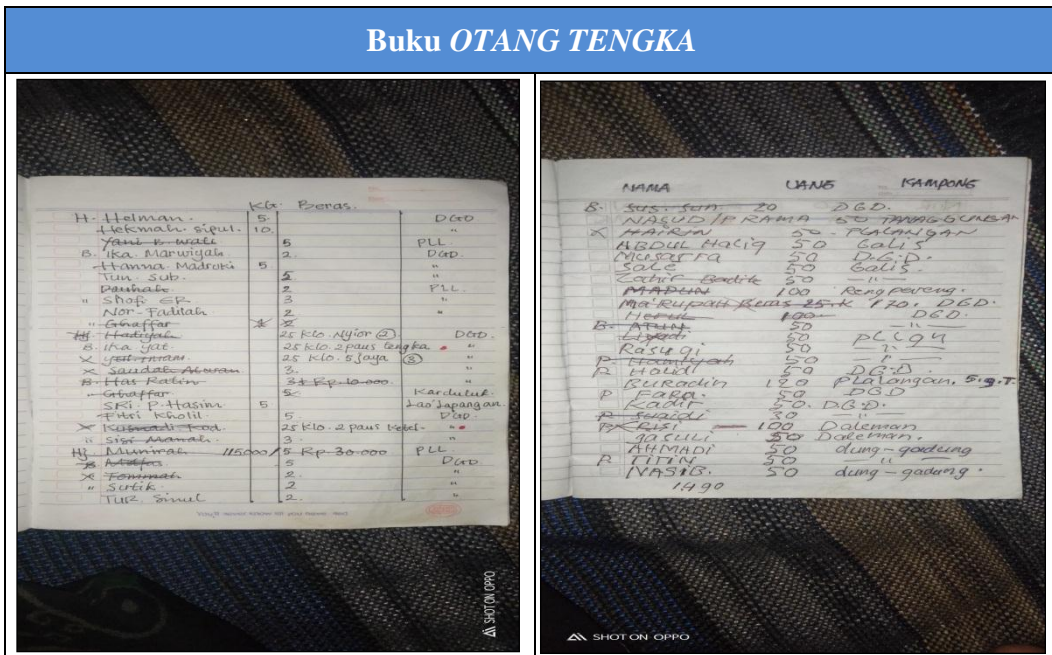 Buku OTANG TENGKA
KG. Beras.
H. Helman. 5. DGD
Hekmah. Sipul. 10. "
Yani B. Wati 5 PLL.
B. Ika. Marwiyah. 2. DGD.
Hanna. Madruki 5 "
Tun. Sub. 5 "
2 PLL.
" Shofi. ER 3 "
Nor-Faditah 2 "
" Ghaffar
Hj. Hadiyah 25 Klo. Nyior (2) DGD
B. Ika yat. 25 Klo. 2 paus tengka. "
X 25 Klo. 5 Jaya (3) "
X Saudah 3. "
B. Has Ratin 3 Rp. 10.000. "
" Ghaffar 5. Karduluk.
SRi. P. Hasim 5 Lao'Lapangan.
Fitri Kholil 5. DGD.
X 25 Klo. 2 paus "
" Sisi Manah. 3. "
Hj. Muniwah 115000/5 Rp. 30.000 PLL.
5 DGD
X 2. "
" Sutik. 2 "
TUR. Sinul 2. "
SHOT ON OPPO
NAMA UANG KAMPONG
B. Sus. Sun. 20 DGD.
NASUD/P RAMA 50
X HAIRIN 50 PLALANGAN
ABDUL Haliq 50 Galis
Musarfa 50 D.G.D.
Sale 50 Galis.
Zahir Badik 50 "
MADUN 100 Rengpereng.
Ma'Rupah Beras 25.K 170. DGD.
Herul 100 DGD.
B. ATUN 50 "
50 PLLgn
Rasugi 50 "
50 "
P Holidi 50 DG.D
Buradin 120 Plalangan. S.g.T.
P FaRa. 50 DGD
Zadir 50. DG.D.
P. Suaidi 50 "
P X Risi 100 Daleman
gasuli 50 Daleman.
AHMADI 50 dung-gadung
P TITIN 50 "
NASIB. 50 dung-gadung.
1490
SHOT ON OPPO